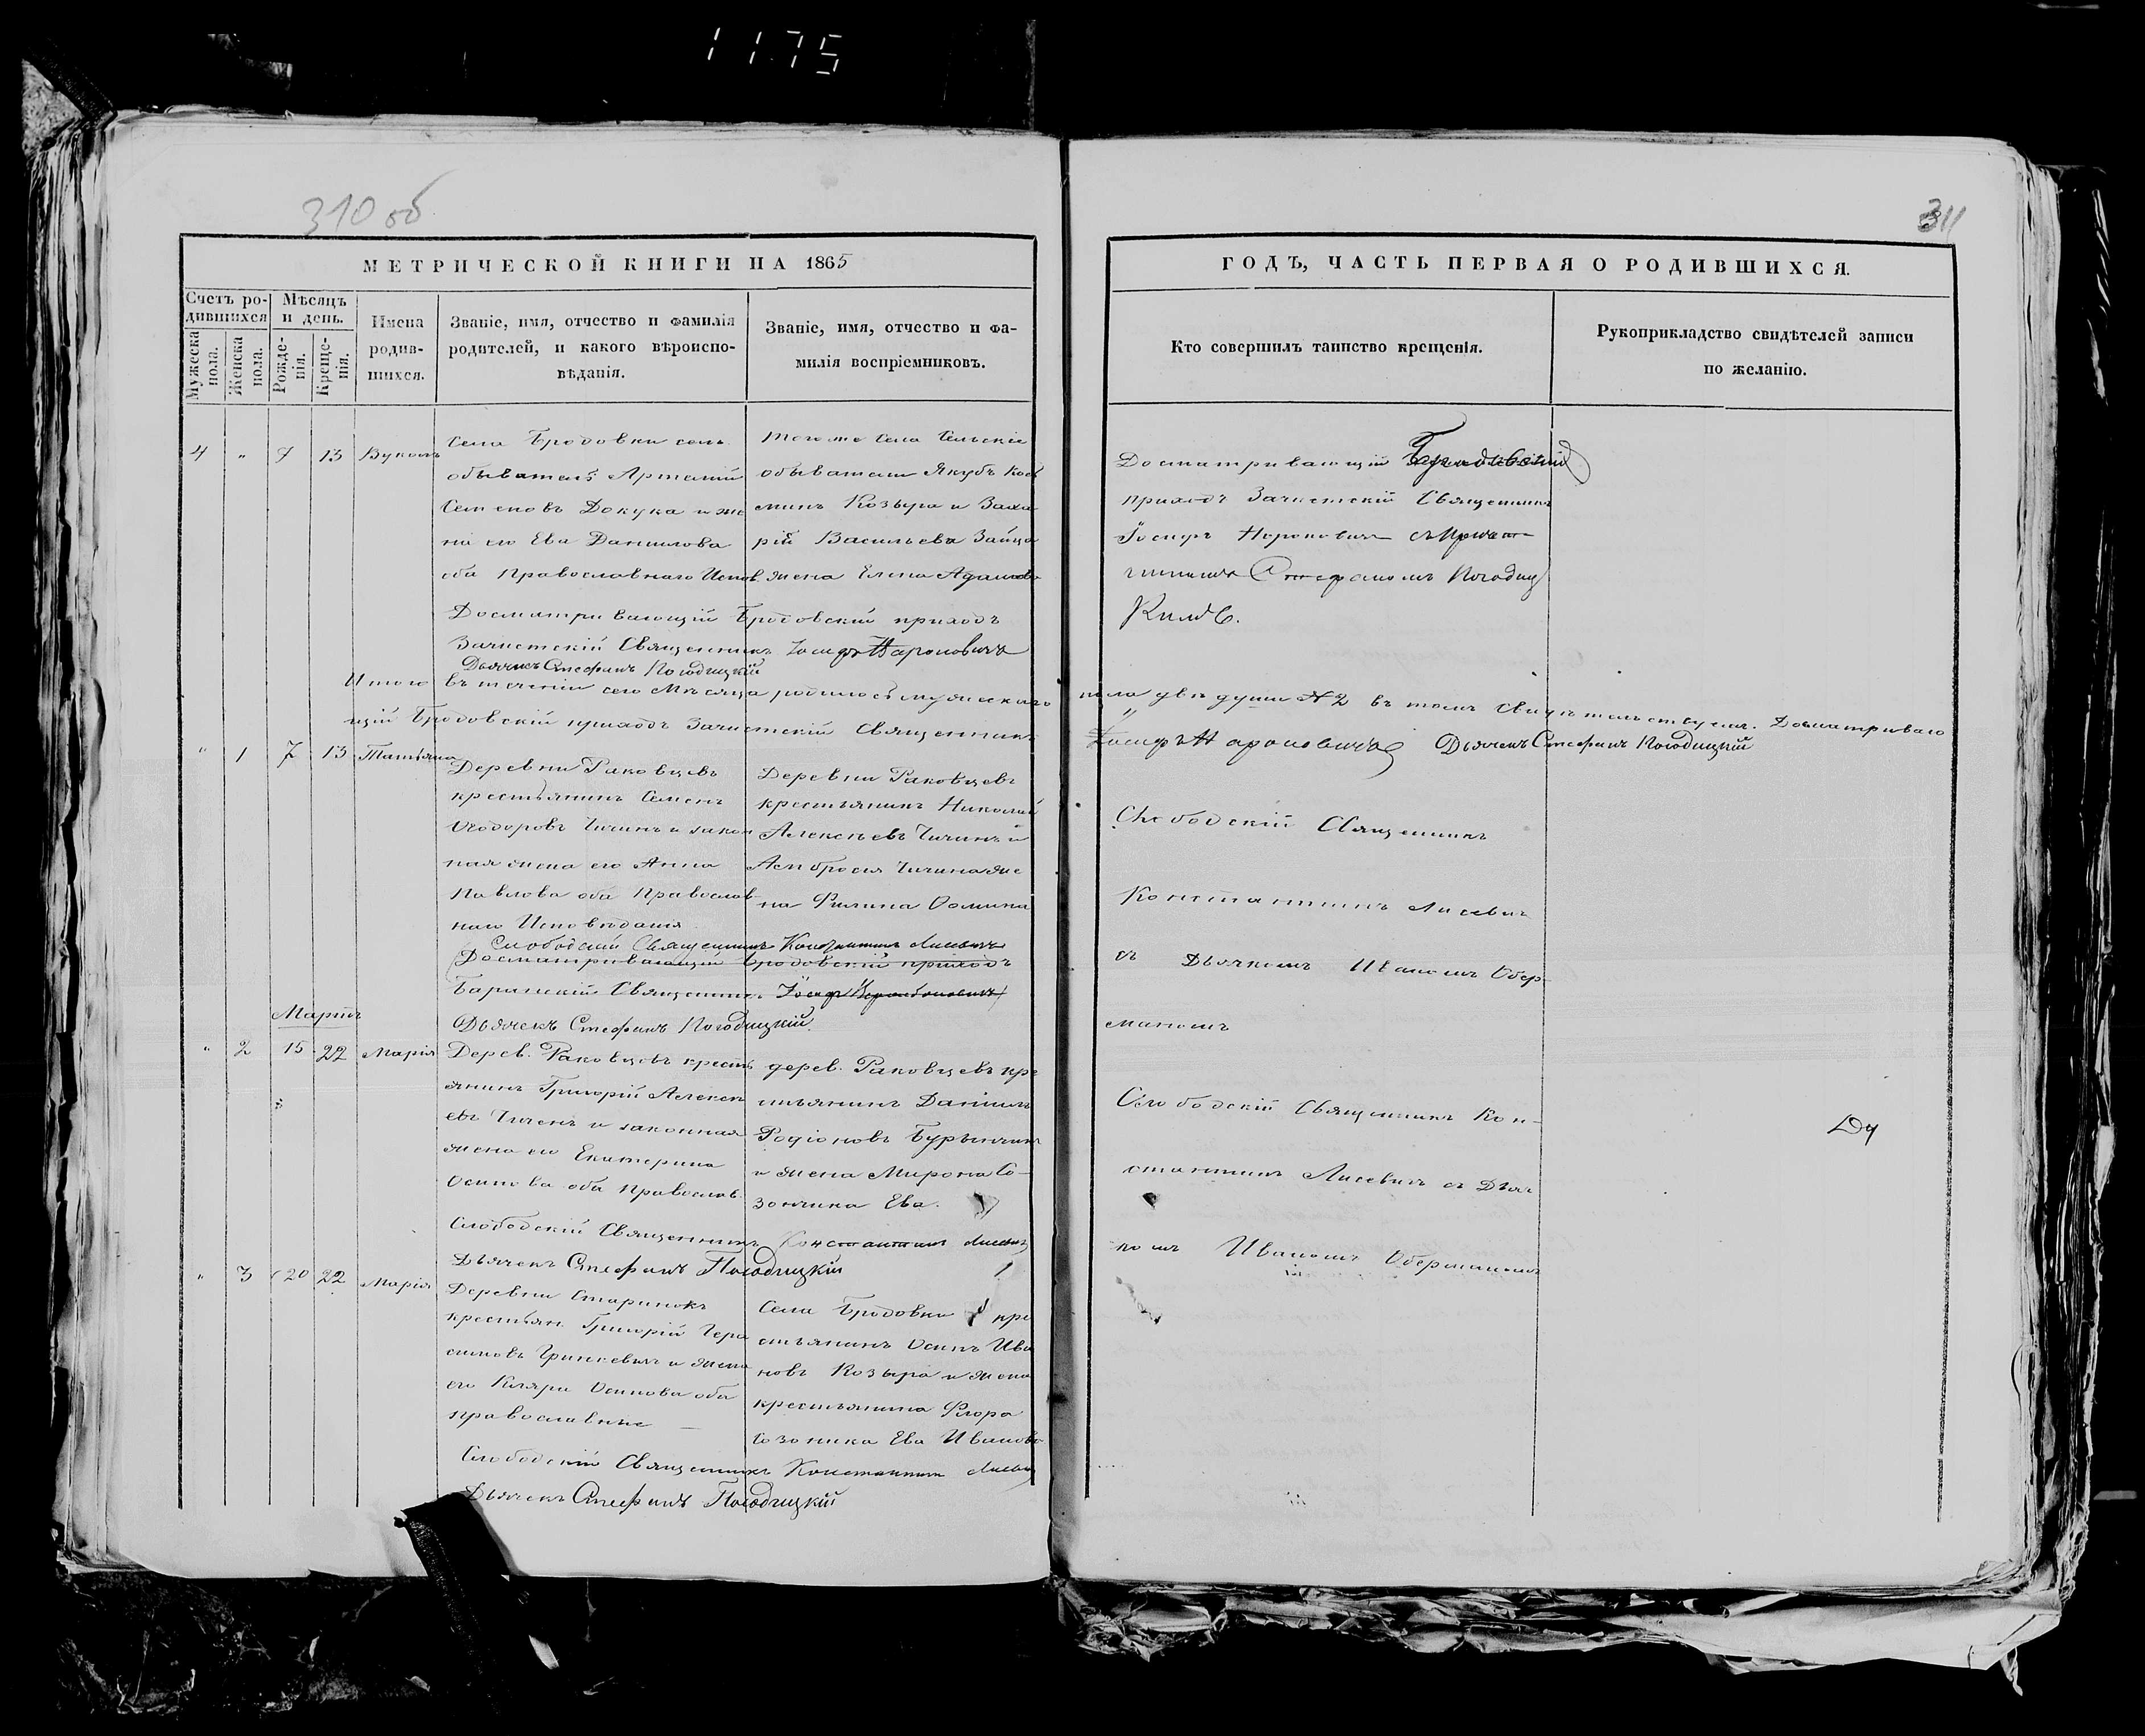 1175
310 об
311
МЕТРИЧЕСКОЙ КНИГИ НА 1865
ГОДЪ, ЧАСТЬ ПЕРВАЯ О РОДИВШИХСЯ.
Счетъ ро-
дившихся
Мѣсяцъ
и день.
Мужеска
пола.
Женска
пола.
Рожде-
нія.
Креще-
нія.
Имена
родив-
шихся.
Званіе, имя, отчество и фамилія
родителей, и какого вѣроиспо-
вѣданія.
Званіе, имя, отчество и фа-
милія воспріемниковъ.
Кто совершилъ таинство крещенія.
Рукоприкладство свидѣтелей записи
по желанію.
4 „ 13
Села Бродовки сель
обыватель Артемій
Семеновъ Докука и же
на его Ева Данилова
оба Православнаго Испов.
тогоже Села Сельскіе
обыватели Якубъ Кось
минъ Козыра и Заха
рій Васильева Зайца
жена Елена Адамова
Досматривающій
приходъ Зачистскій Священникъ
Іосифъ
Стефаномъ Погодиц
кимъ.
Досматривающій Бродовскій приходъ
Зачистскій Священникъ Іосифъ Нароновичъ
Дьячекъ Стефанъ Погодицкій
Итого въ теченіи сего Мѣсяца родилось мужескаго
пола двѣ души № 2 въ томъ Свидѣтельствуемъ. Досматриваю
щій Бродовскій приходъ Зачистскій Священникъ
Іосифъ Нароновичъ Дьячекъ Стефанъ Погодицкій
„ 1 7 13 Татьяна
Деревни Раковцевъ
крестьянинъ Семенъ
Ѳеодоровъ Чичинъ и закон
ная жена его Анна
Павлова оба Православ
наго Исповѣданія
Деревни Раковцевъ
крестьянинъ Николай
Алексѣевъ Чичинъ и
Амбросія Чичина же
на Филипа Ѳомина
Слободскій Священникъ
Константинъ Лисевичъ
съ Дьячкомъ Иваномъ Обер-
маномъ
Слободскій Священникъ Константинъ Лисевичъ
Досматривающій Бродовскій приходъ
Священникъ Іосифъ
Дьячекъ Стефанъ Погодицкій.
Мартъ
„ 2 15 22 Марія
Дерев. Раковцевъ кресть
янинъ Григорій Алексѣ
евъ Чиченъ и законная
жена его Екатерина
Осипова оба Православ.
дерев. Раковцевъ кре
стьянинъ Даніилъ
Родіоновъ Бурынчикъ
и жена Мирона Со-
зончика Ева.
Слободскій Священникъ Кон-
стантинъ Лисевичъ съ Дьяч
комъ Иваномъ Оберманомъ
Слободскій Священникъ Константинъ Лисевичъ
Дьячекъ Стефанъ Погодицкій
„ 3 20 22 Марія
Деревни Старинокъ
крестьян. Григорій Гера
симовъ Гринкевичъ и жена
его Кляри Осипова оба
православные
Села Бродовки кре
стьянинъ Осипъ Ива
новъ Козыра и жена
крестьянина Флора
Созоника Ева Иванова
Слободскій Священникъ Константинъ Лисевичъ
Дьячекъ Стефанъ Погодицкій